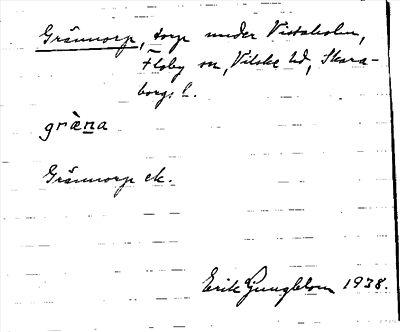 Grännorp, torp under Vistaholm,
Floby sn, Vilske hd, Skara-
borgs l.
græ̀na
Grännorp ek.
Erik Ljungblom 1938.